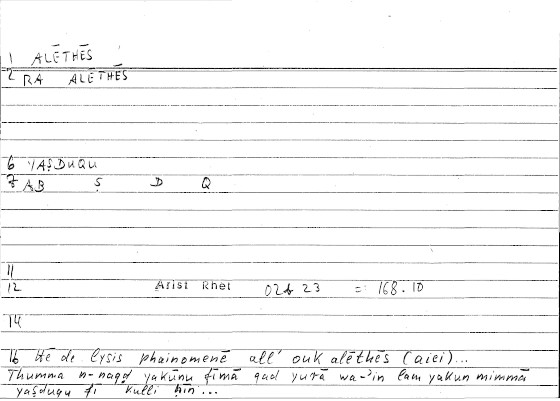 1 ALĒTHĒS
2 RA ALĒTHĒS
6 YAṢDUQU
7 AB Ṣ D Q
11
12 Arist Rhet 02b 23 = 168.10
14
16 Hē de lysis phainomenē all' ouk alēthēs (aiei)...
Thumma n-naqḍ yakūnu fīmā qad yurā wa-'in lam yakun mimmā
yaṣduqu fī kulli ḥīn...